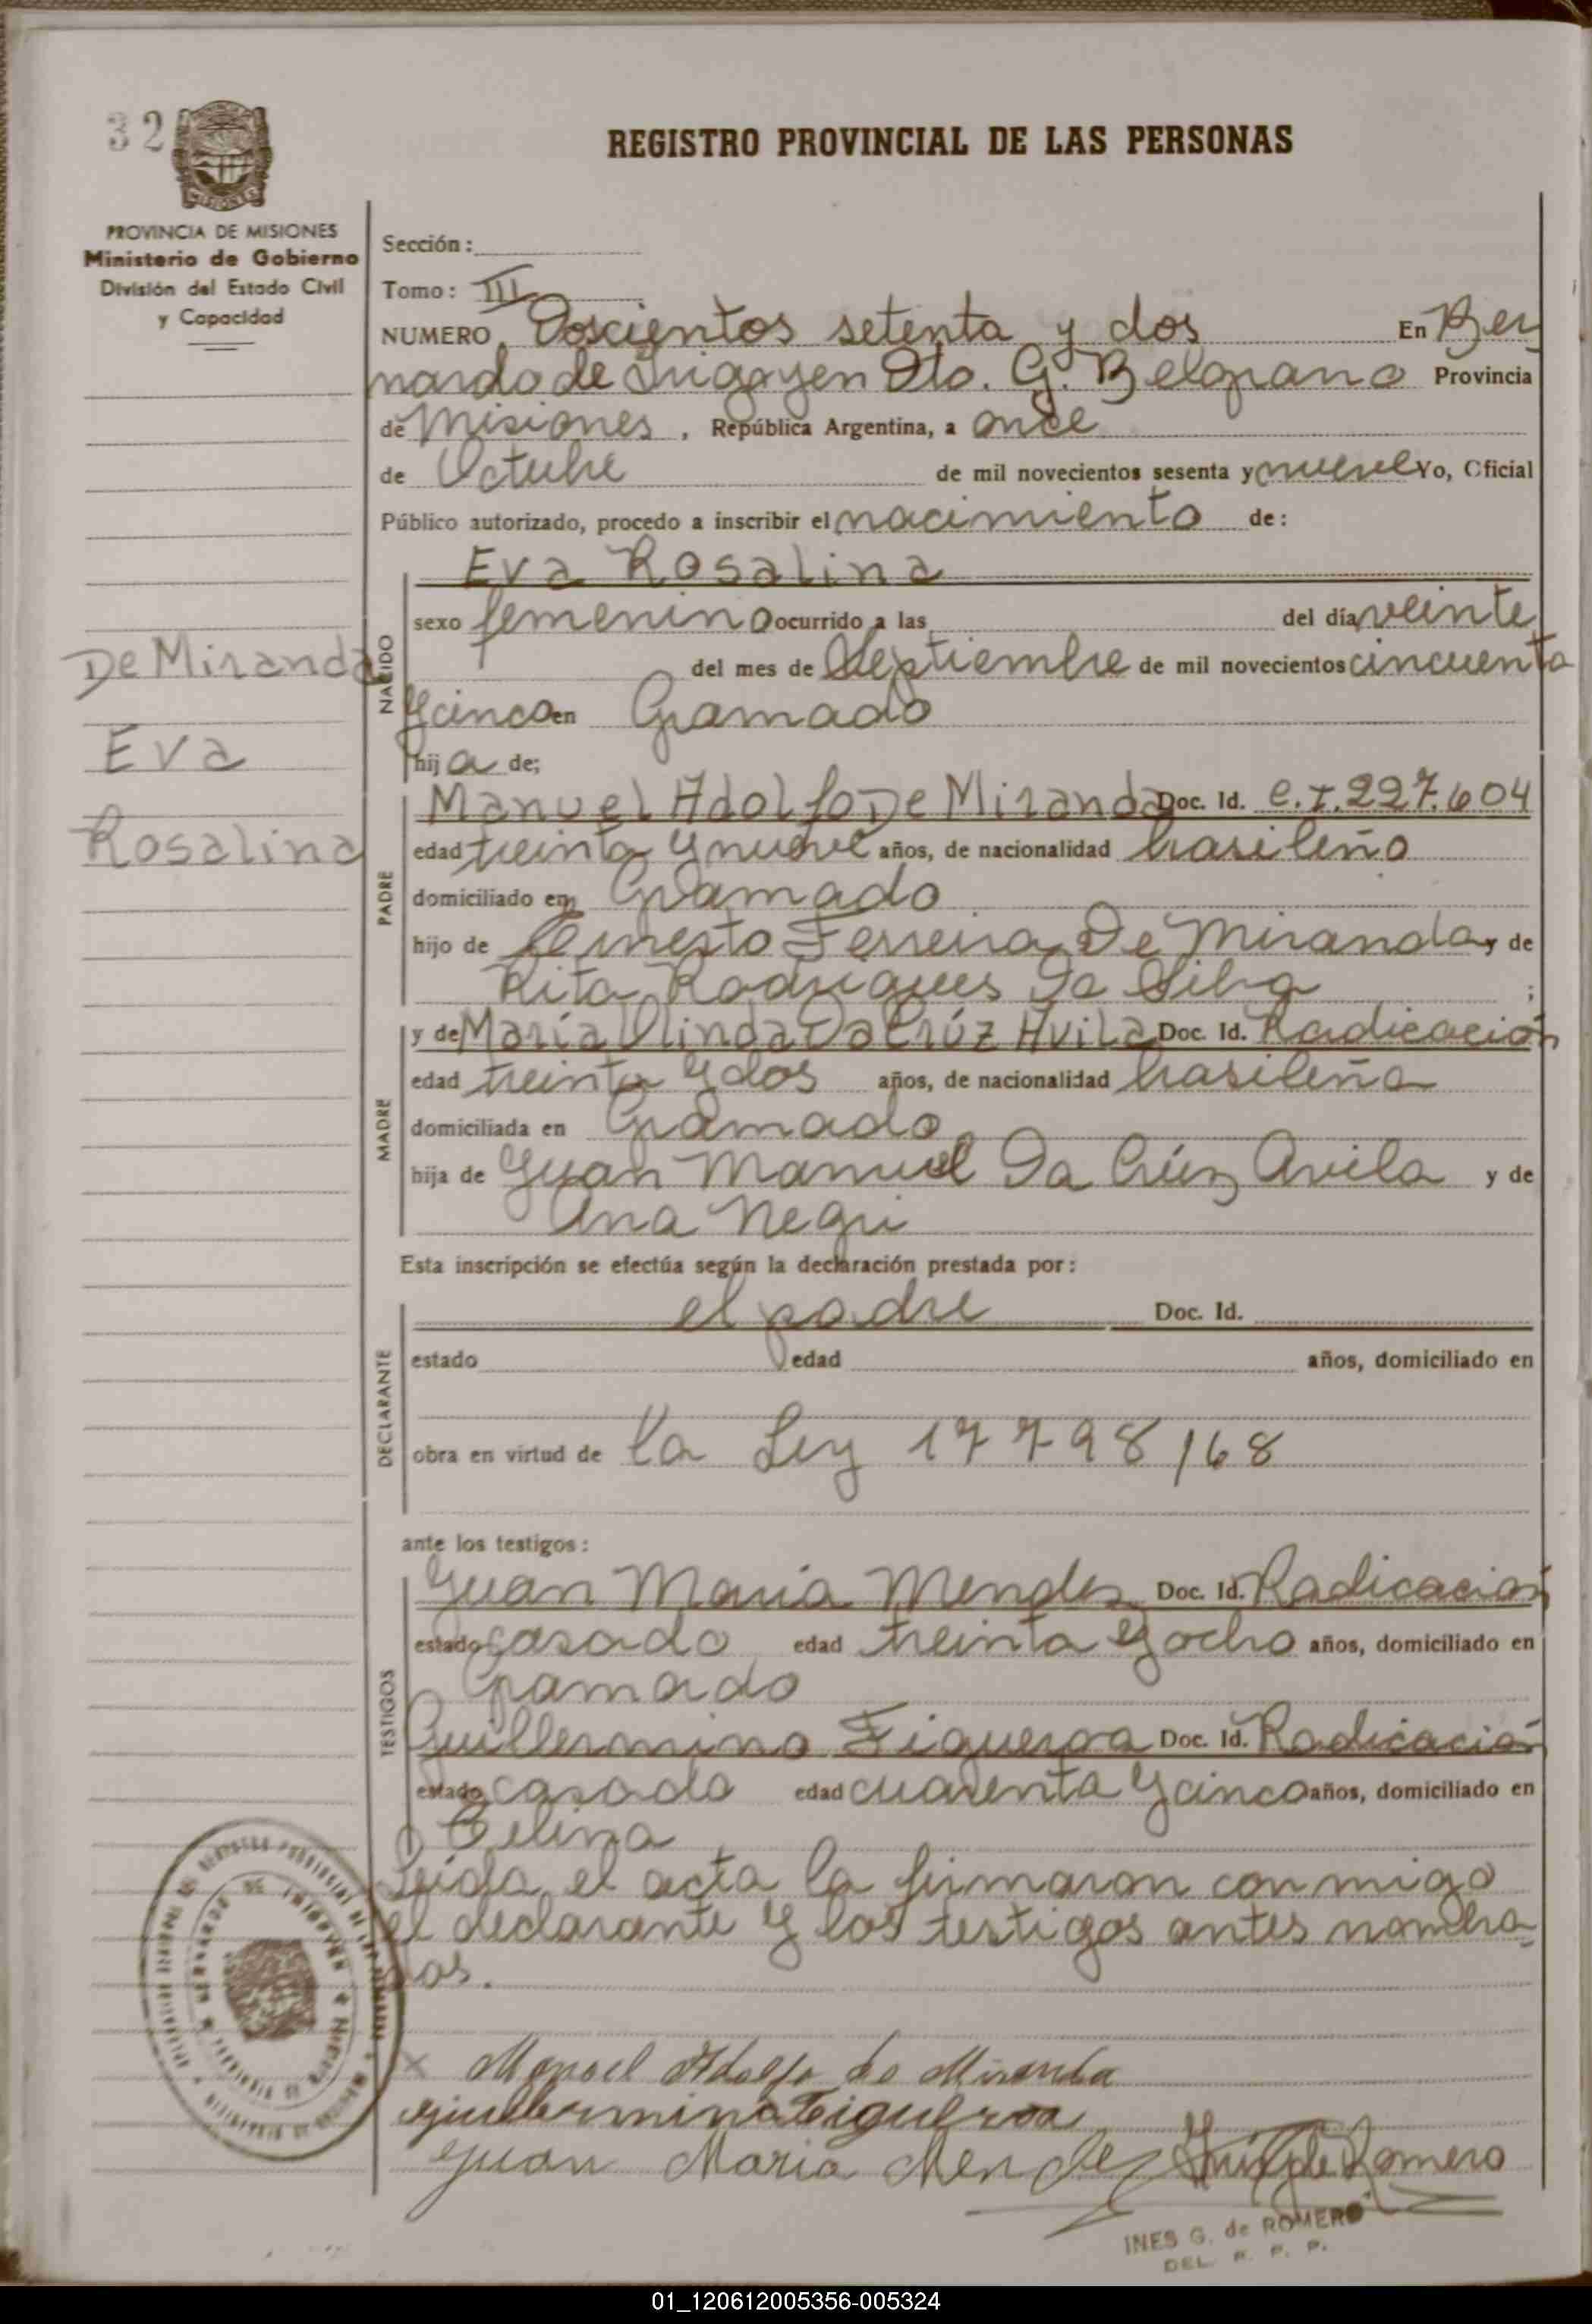 32
REGISTRO PROVINCIAL DE LAS PERSONAS
PROVINCIA DE MISIONES
Ministerio de Gobierno
División del Estado Civil
y Capacidad
Sección:
Tomo: III
NUMERO Doscientos setenta y dos En Ber
nardo de Irigoyen Dto. G. Belgrano Provincia
de Misiones, República Argentina, a once
de Octubre de mil novecientos sesenta y nueve Yo, Oficial
Público autorizado, procedo a inscribir el nacimiento de:
Eva Rosalina
sexo femenino ocurrido a las del día veinte
del mes de Septiembre de mil novecientos cincuenta
y cinco en Gramado
hija de;
De Miranda
Eva
Rosalina
NACIDO
Manuel Adolfo De Miranda Doc. Id. C.I. 227.604
edad treinta y nueve años, de nacionalidad brasileño
domiciliado en Gramado
hijo de Ernesto Ferreira De Miranda y de
Rita Rodrigues Da Silva ;
PADRE
y de María Olinda Da Crúz Avila Doc. Id. Radicación
edad treinta y dos años, de nacionalidad brasileña
domiciliada en Gramado
hija de Juan Manuel Da Crúz Avila y de
Ana Negri
MADRE
Esta inscripción se efectúa según la declaración prestada por:
el padre Doc. Id.
estado edad años, domiciliado en
obra en virtud de la Ley 17798/68
DECLARANTE
ante los testigos:
Juan Maria Mendes Doc. Id. Radicación
estado casado edad treinta y ocho años, domiciliado en
Gramado
Guillermino Figueroa Doc. Id. Radicación
estado casado edad cuarenta y cinco años, domiciliado en
Celina
TESTIGOS
Leida el acta la firmaron conmigo
el declarante y los testigos antes nombra
dos.
Manoel Adolfo de Miranda
guillermino Figueroa
Juan Maria Mendez
G. de Romero
INES G. de ROMERO
DEL. R. P. P.
01_120612005356-005324